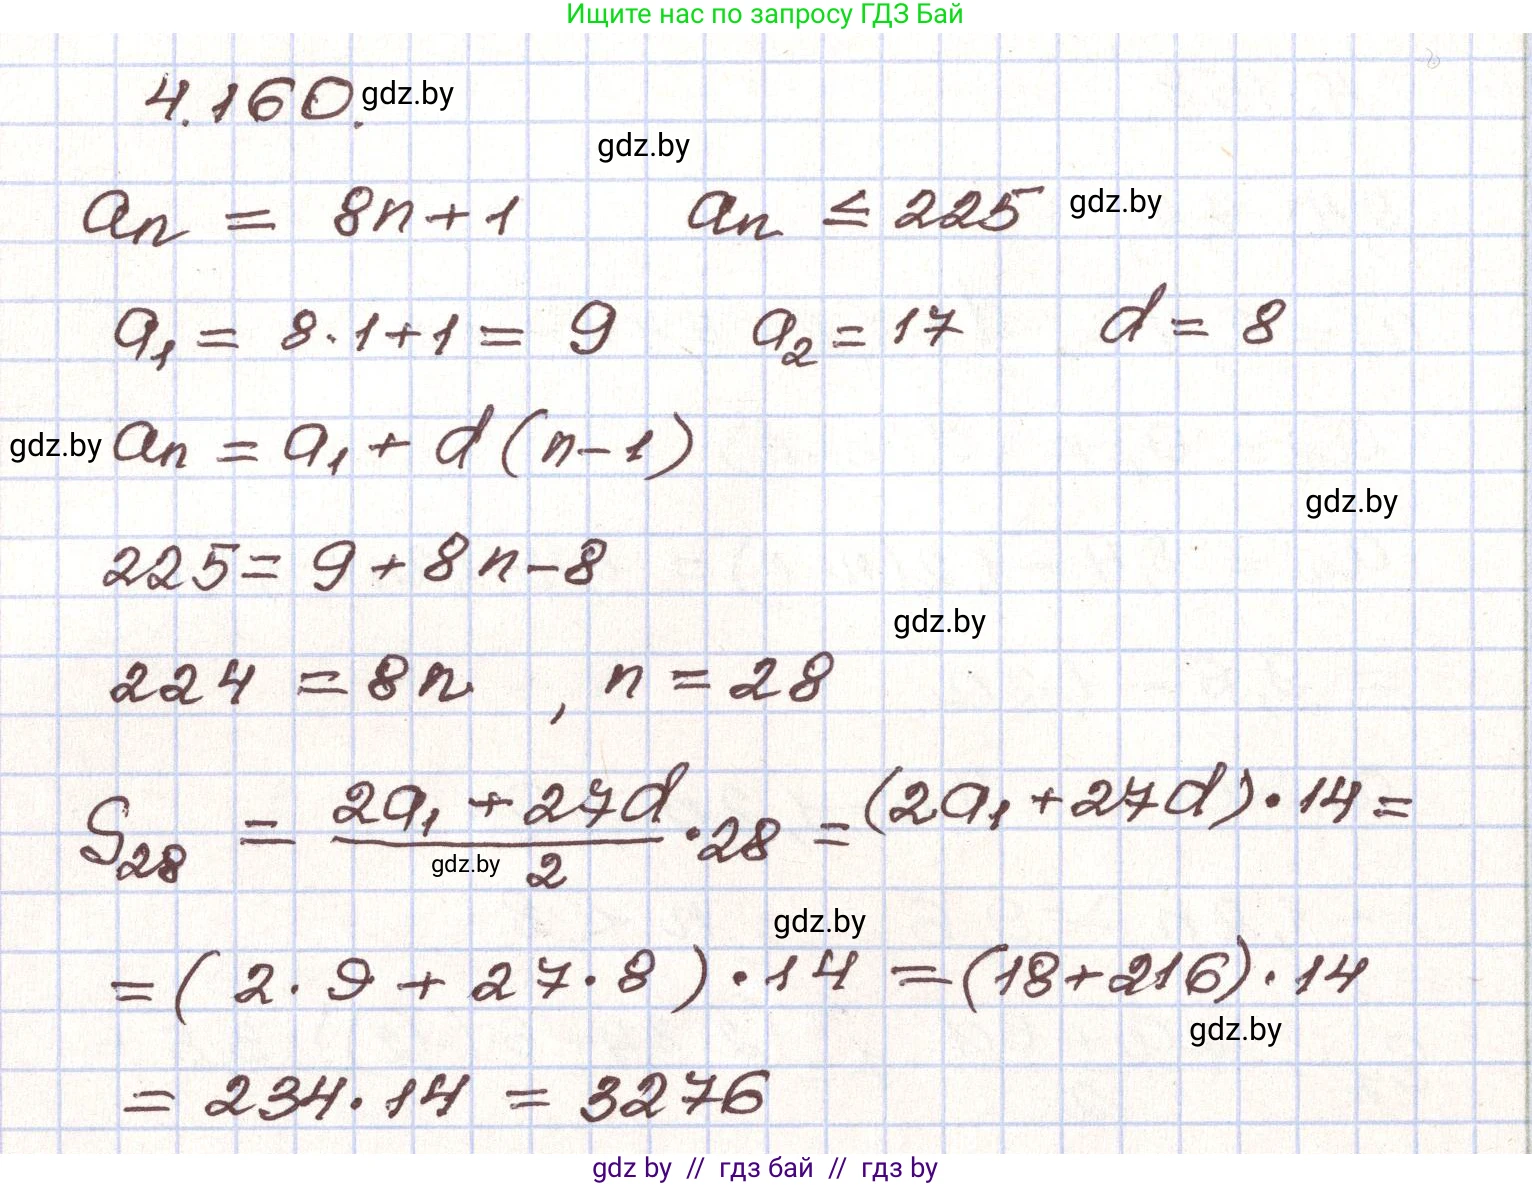 Ищите нас по запросу ГДЗ Бай
4.160. gdz.by
gdz.by
an = 8n+1 an ≤ 225 gdz.by
a1 = 8·1+1 = 9 a2 = 17 d = 8
gdz.by an = a1 + d(n-1)
gdz.by
225 = 9 + 8n - 8
gdz.by
224 = 8n , n = 28
S28 = (2a1 + 27d)/2 · 28 = (2a1 + 27d) · 14 =
gdz.by
gdz.by
= (2·9 + 27·8) · 14 = (18+216) · 14
gdz.by
= 234 · 14 = 3276
gdz by // гдз бай // гдз by